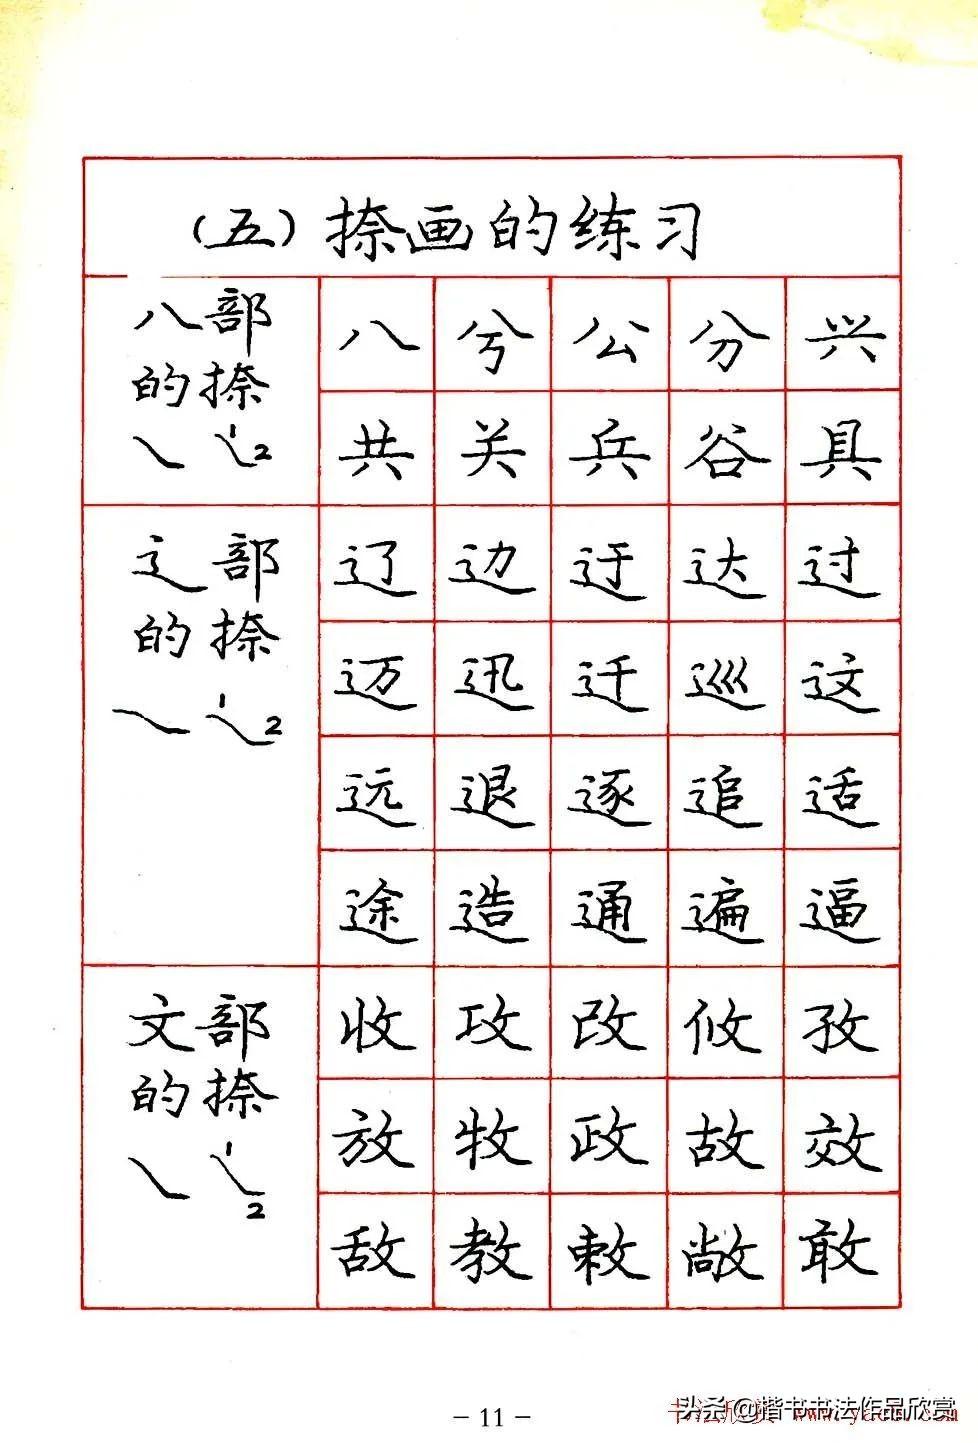 （五）捺画的练习
八部
的捺
1 2
八 兮 公 分 兴
共 关 兵 谷 具
辶部
的捺
1 2
辽 边 迂 达 过
迈 迅 迁 巡 这
远 退 逐 追 适
途 造 通 遍 逼
文部
的捺
1 2
收 攻 改 攸 孜
放 牧 政 故 效
敌 教 敕 敞 敢
- 11 -
头条@楷书书法作品欣赏